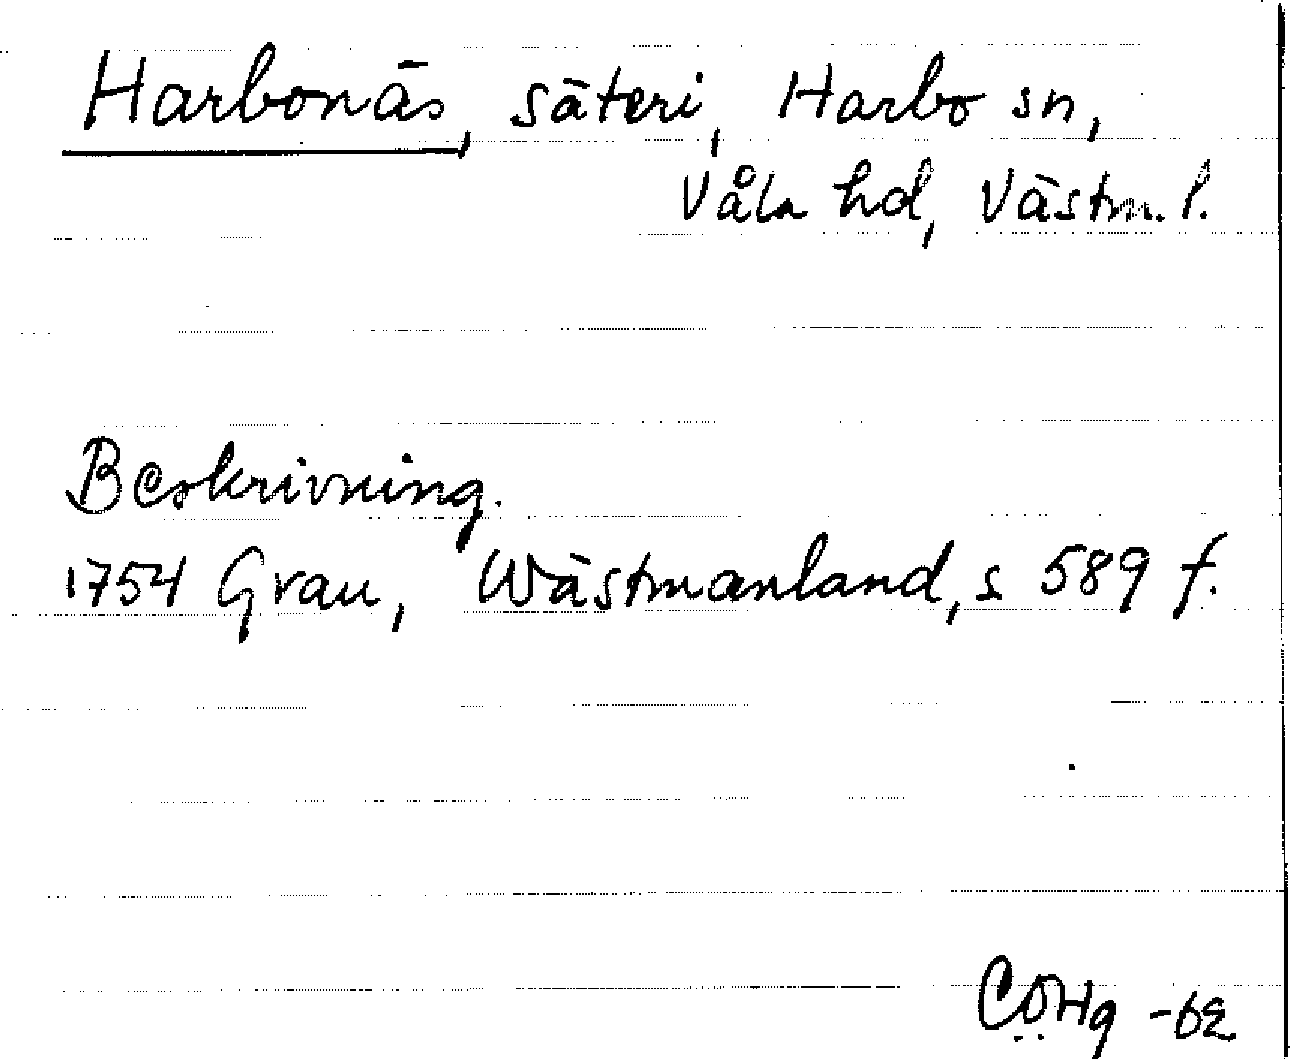 Harbonäs, säteri, Harbo sn,
Våla hd, Västm. l.
Beskrivning.
1754 Grau, Wästmanland, s 589 f.
CÖHg -62